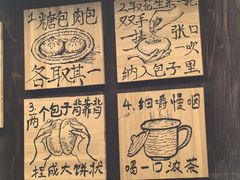 1.糖包肉包
各取其一
2.取花生米一把
双手
一搓
张口
一吹
纳入包子里
3.两个包子背靠背
捏成大饼状
4.细嚼慢咽
喝一口波茶